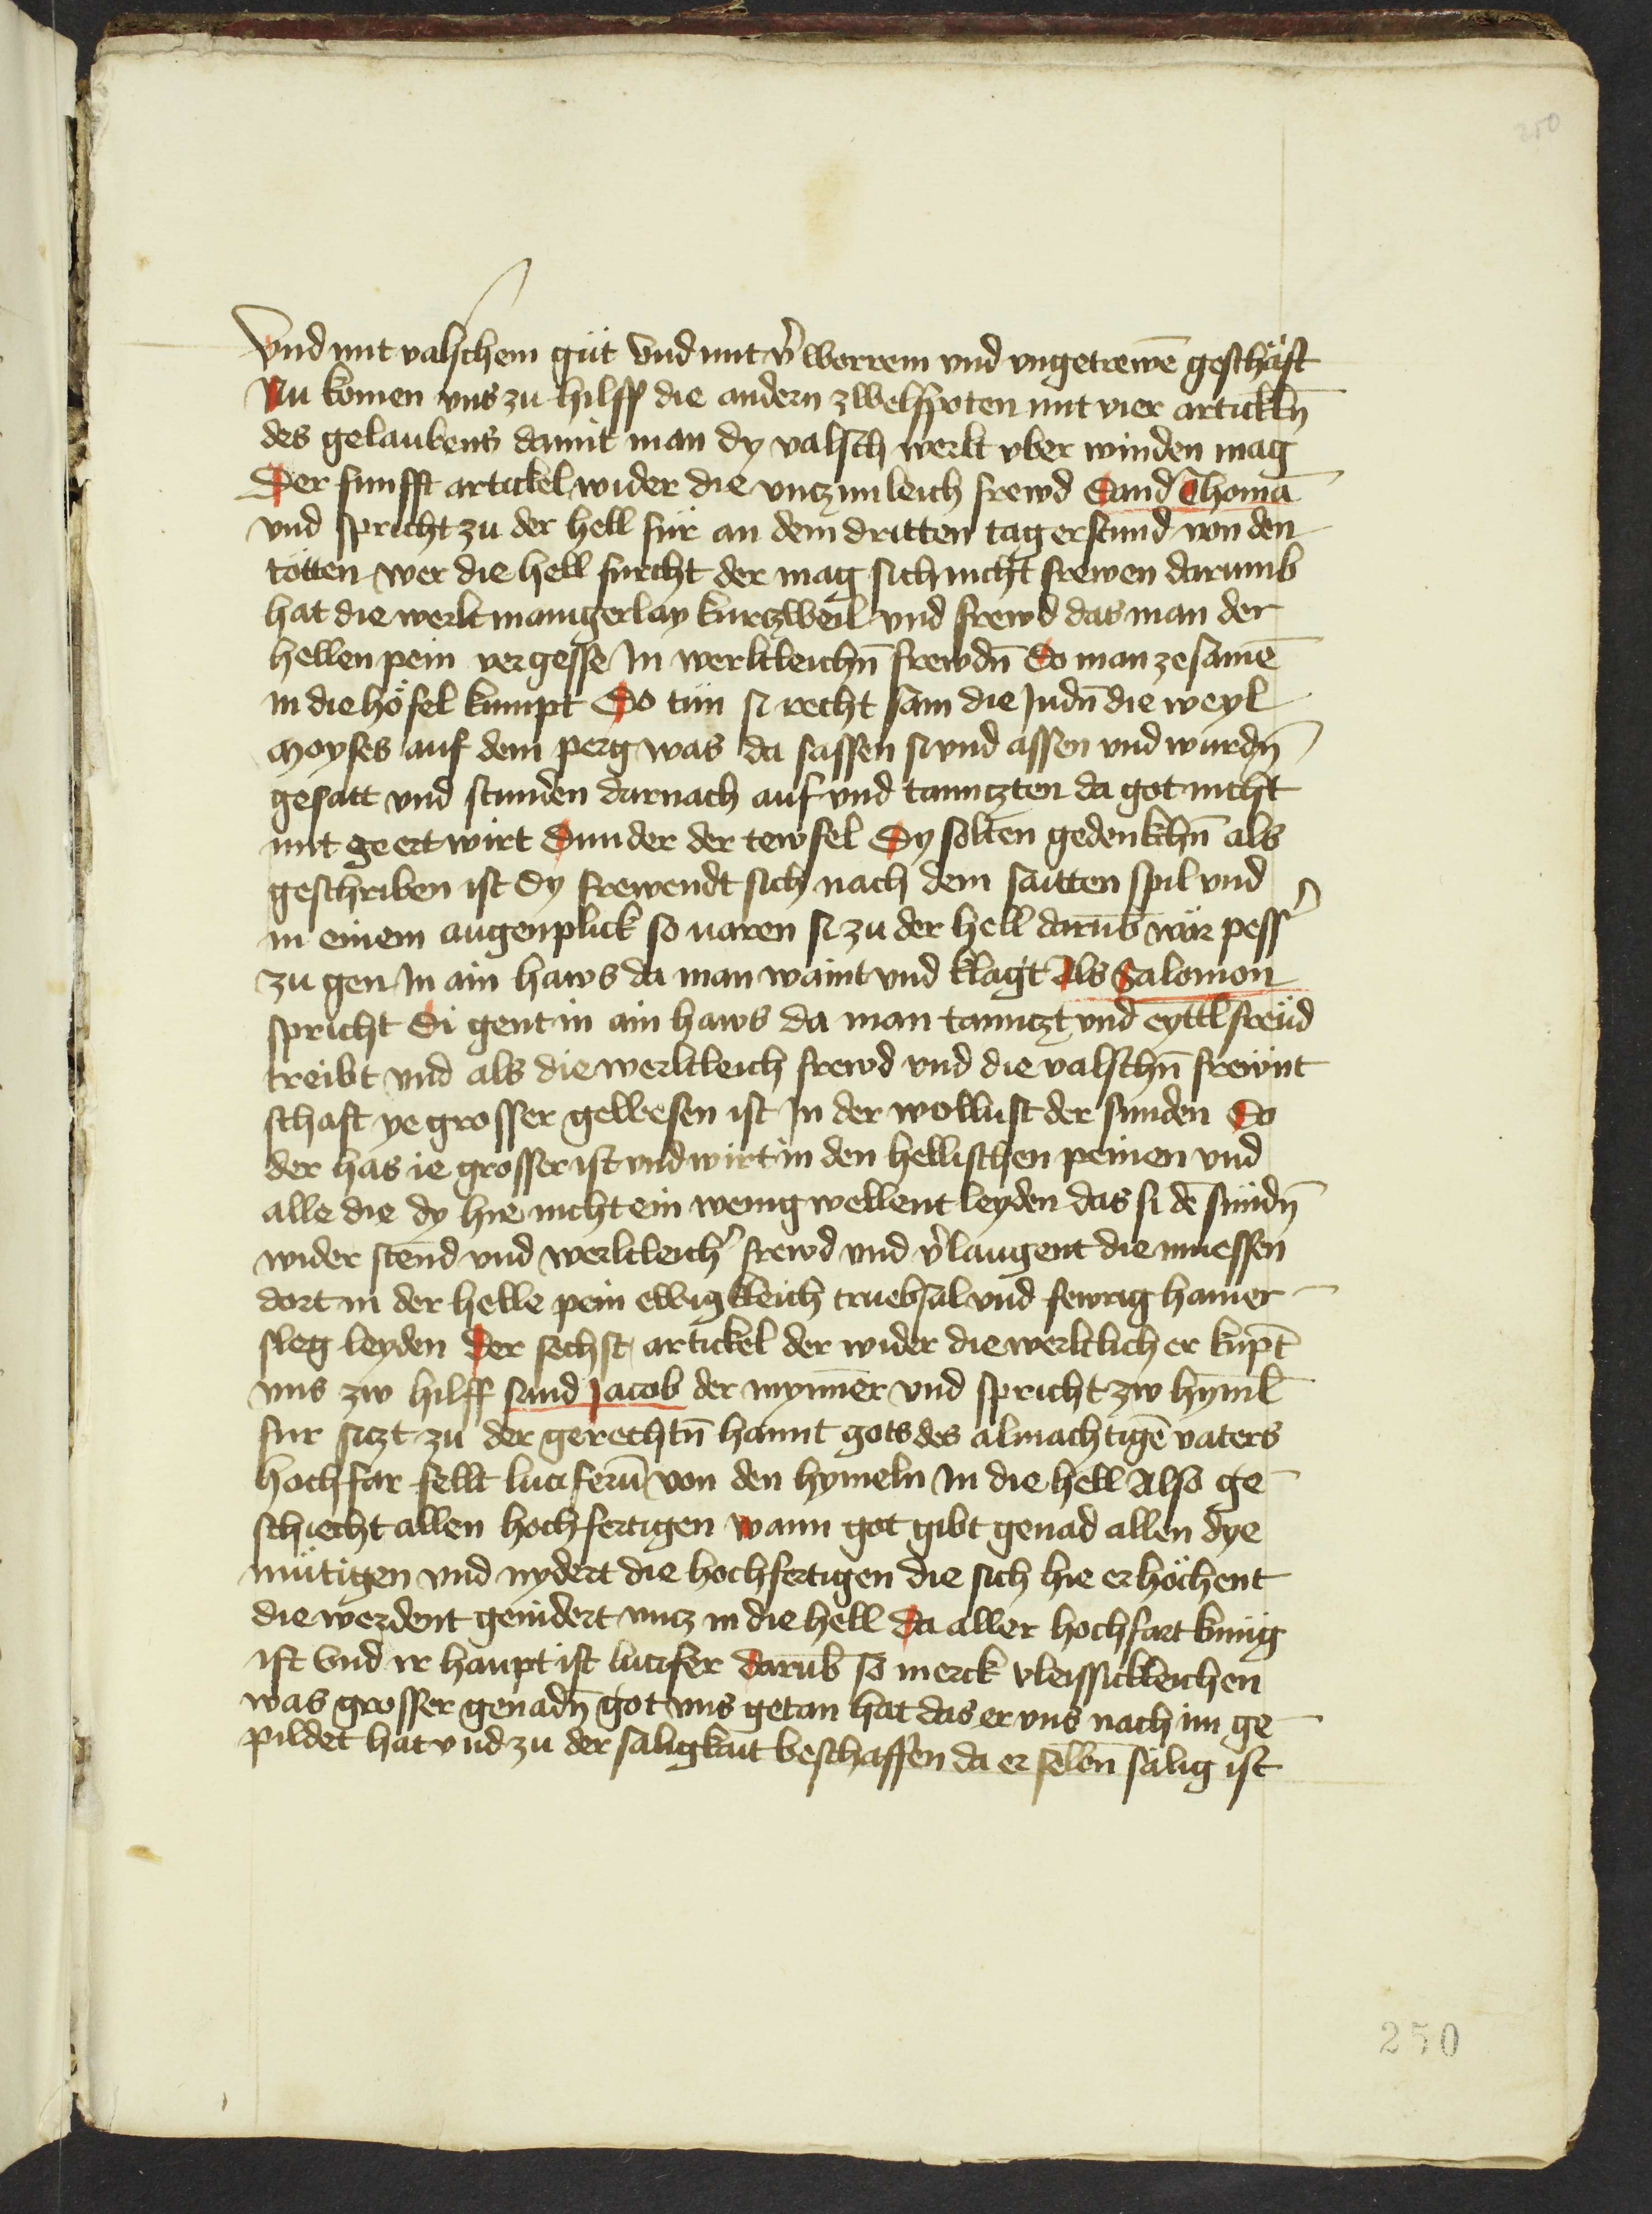 250
Vnd mit valschem güt Vnd mit v̉ worrem vnd vngetrewē geschäft
Nu komen vns zu hilff die andern zwelfpoten mit vier artickln̄
des gelaubens damit man dy valsch werlt vber winden mag
Der funfft artickel wider die vnczimleich frewd Sand Thomā
vnd spricht zu der hell für an dem dritten tag erstund von den
tötten wer die hell furcht der mag sich nicht frewen darumb
hat die werlt manigerlay kurczweil vnd frewd das man der
hellen pein vergesse In werltleichn̄ frewdn̄ So man zesamē
in die höfel kumpt So tün si recht sam die Judn̄ die weyl
Moyses auf dem perg was da sassen si vnd assen vnd wurdn̄
gesatt vnd stunden darnach auf vnd tannczten da got nicht
mit geert wirt Sunder der tewfel Dy solten gedenkchn̄ als
geschriben ist Dy frewendt sich nach dem saitten spil vnd
in einem augenplick so varen si zu der hell darūb wär pess̉
zu gen In ain haws da man waint vnd klagt Als Salomon
spricht Di gent in ain haws da man tannczt vnd eyttl freüd
treibt vnd als die werltleich frewd vnd die valschn̄ frewnt
schaft ye grosser gewesen ist In der wollust der sunden So
der has ie grosser ist vnd wirt in den hellischen peinen vnd
alle die dy hie nicht ein wenig wellent leyden das si dē sündn̄
wider stend vnd werltleich̉ frewd vnd v̉laugent die muessen
dort in der helle pein ewigkleich truebsal vnd fewrig hamer
sleg leyden Der sechst artickel der wider die werltlich er kūpt
vns zw hilff sand Jacob der mynner vnd spricht zw hyml̄
fur siczt zu der gerechtn̄ hannt gots des almachtigē vaters
hochfar fellt luciferū von den hymeln In die hell Also ge
schiecht allen hochfertigen wann got gibt genad allen dye
mütigen vnd nydert die hochfertigen die sich hie erhöchent
die werdent genidert vncz in die hell da aller hochfart kunig
ist Vnd ir haupt ist lucifer darūb so merck vleissickleichen
was grosser genadn̄ got vns getan hat das er vns nach im ge
pildet hat vnd zu der saligkait beschaffen da er selbn̄ sälig ist
250